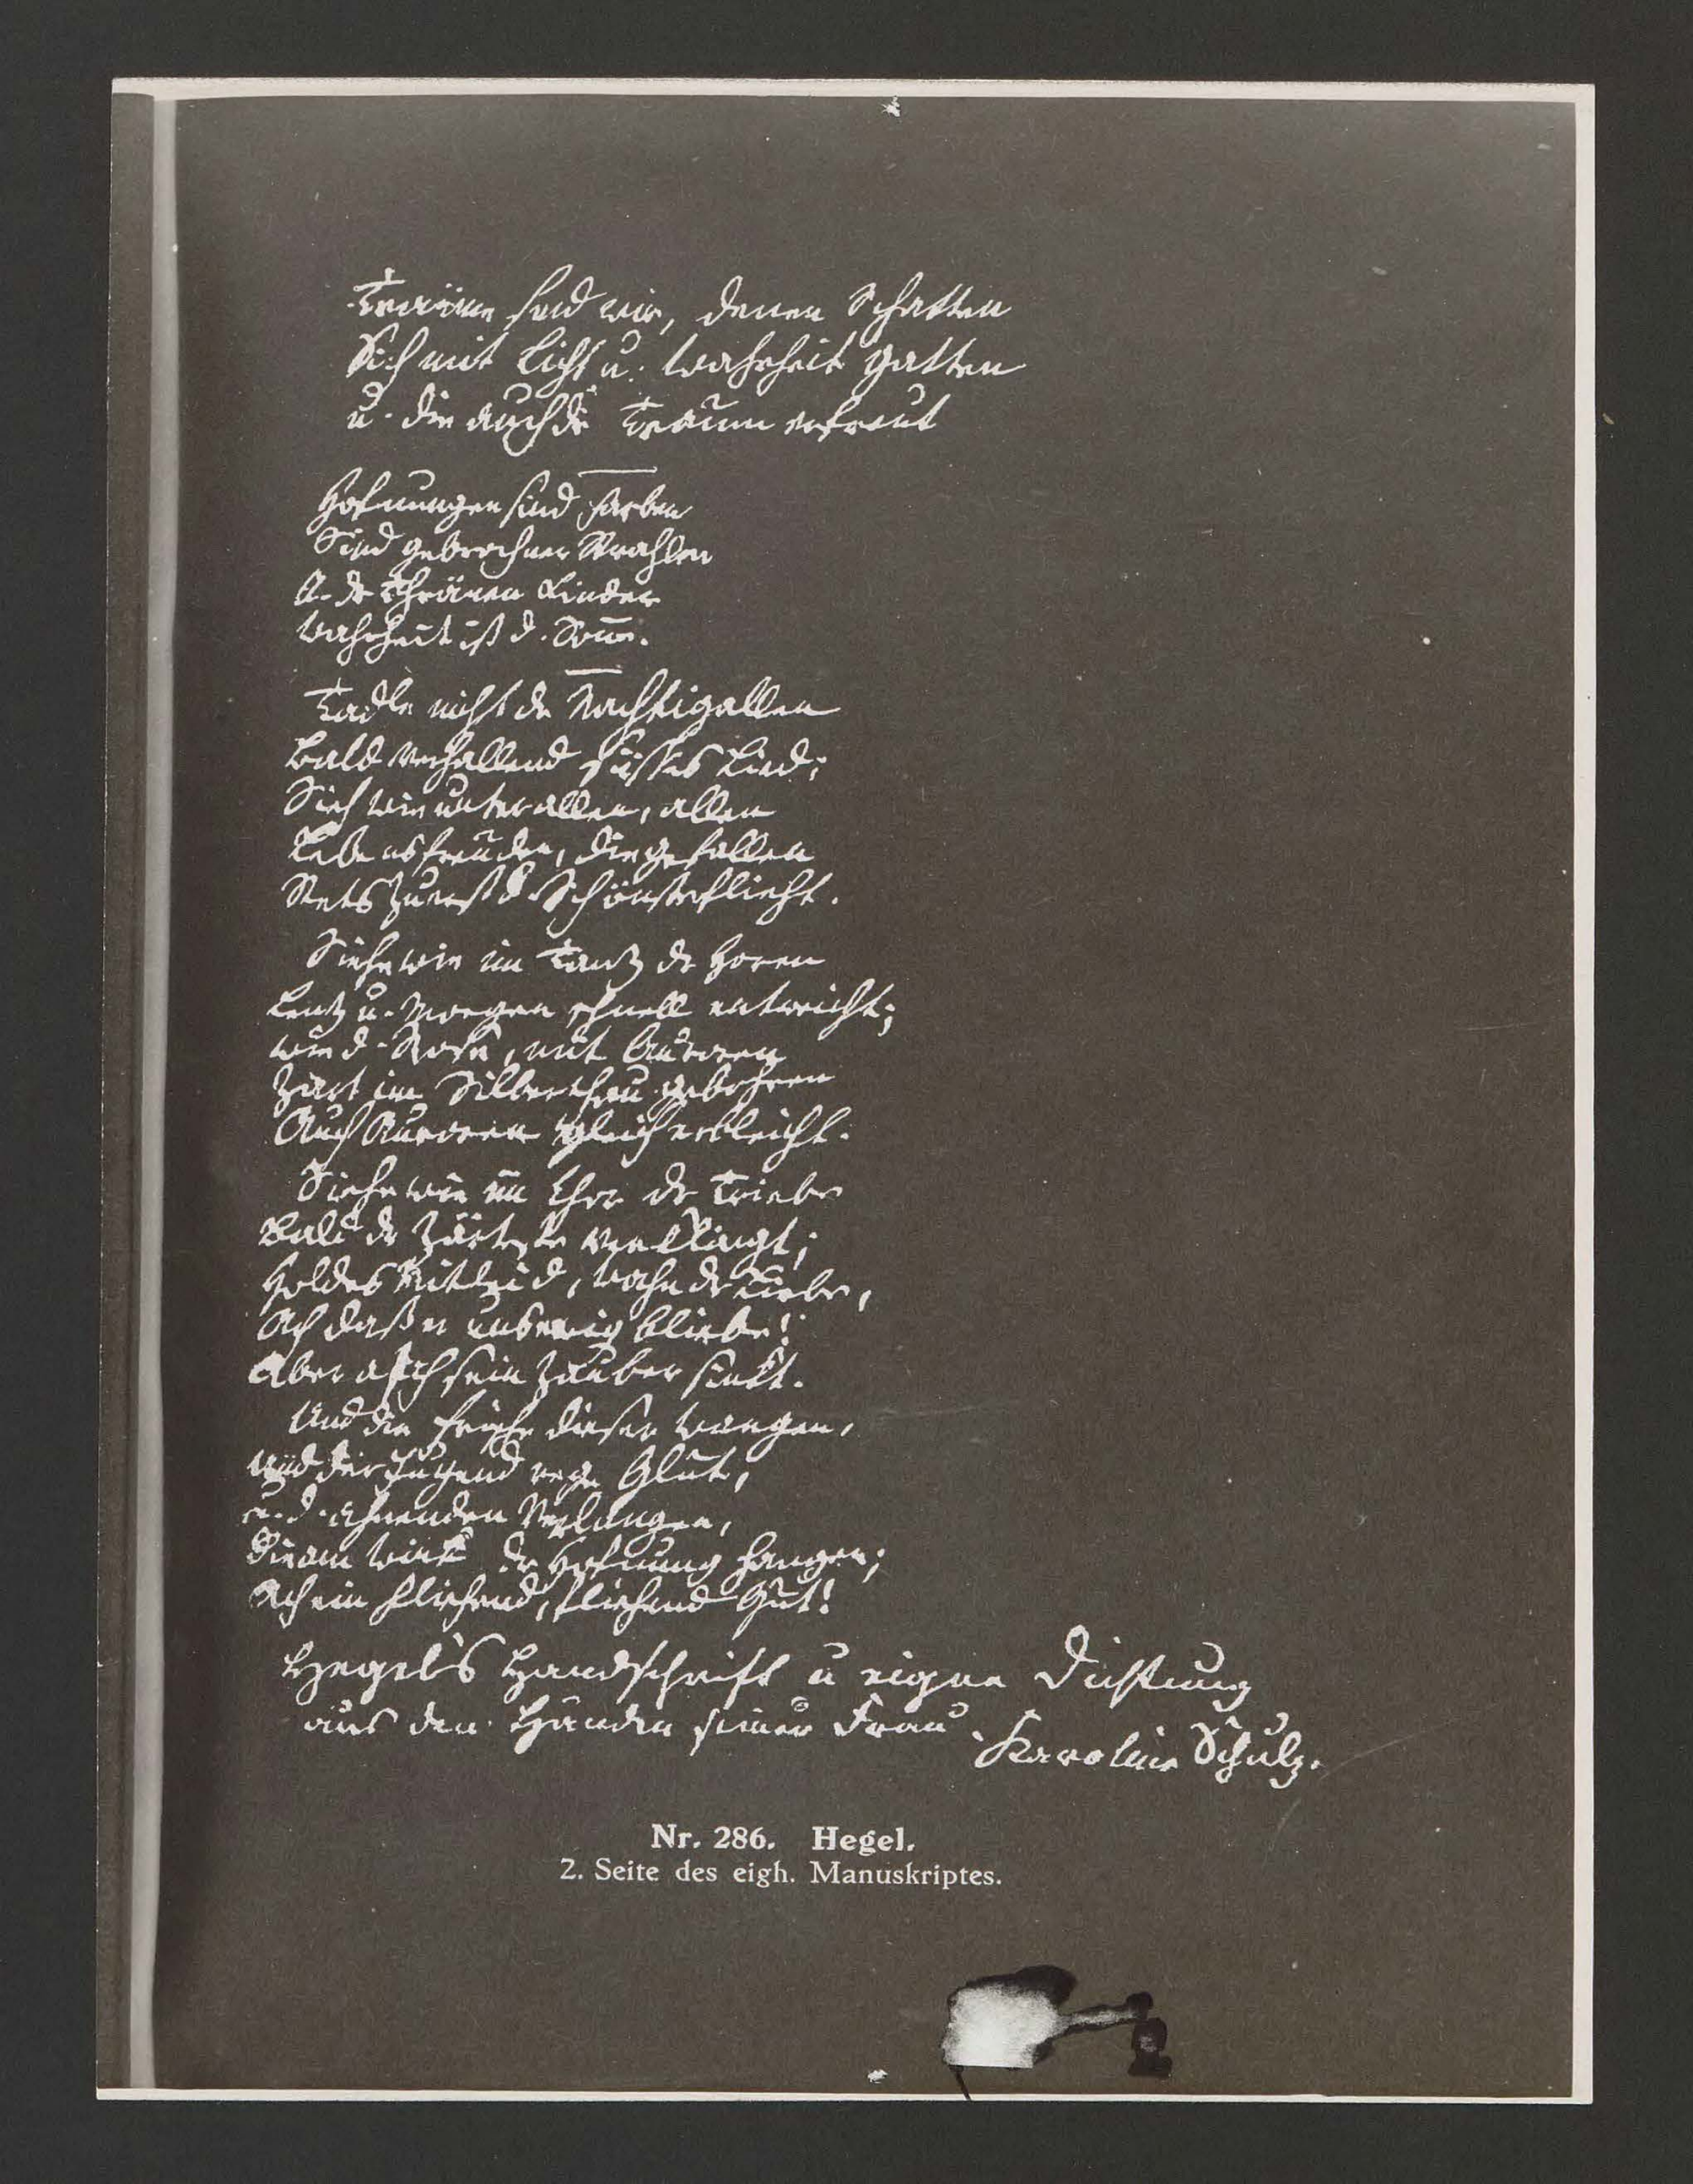 Träume sind wir, denen Schatten
Sich mit Licht u. Wahrheit gatten
u. die auch dr Traum erfreut
Hofnungen sind Farben
Sind gebrochner Strahlen
U. dr Thränen Kinder
Wahrheit ist d. Soñe.
Tadle nicht dr Nachtigallen
Bald verhallend süsses Lied;
Sieh wie unter allen, allen
Lebensfreuden, die gefallen
Stets zuerst d. Schönste flieht.
Siehe wie im Tanz dr Horen
Lenz u. Morgen schnell entweicht;
wie d. Rose, mit Auroren
Zart im Silberthau gebohren
Auch Auroren gleich erbleicht.
Siehe wie im Chor dr Triebe
Bald dr zärteste verklingt;
Holdes Mitleid, Wahn dr Liebe,
Ach daß er uns ewig bliebe!
Aber ach sein Zauber sinkt.
Und die Frische dieser Wangen,
und der Jugend rege Glut,
u. d. ahnenden Verlangen,
Die am Wink dr Hofnung hangen;
Ach ein fliehend, fliehend Gut!
Hegel's Handschrift u eigne Dichtung
aus den Händen seiner Frau
Karoline Schulz.
Nr. 286. Hegel.
2. Seite des eigh. Manuskriptes.